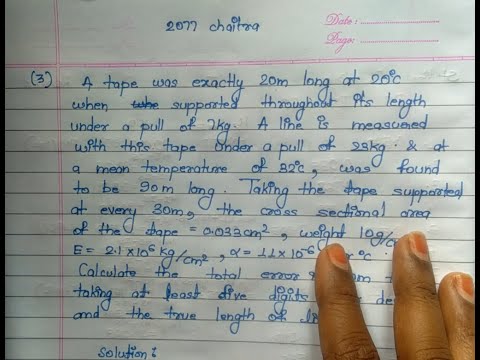 2077 chaitra
Date : 
Page : 
(3) A tape was exactly 20m long at 20°c
when supported throughout its length
under a pull of 7kg. A line is measured
with this tape under a pull of 23kg. & at
a mean temperature of 32°c, was found
to be 90m long. Taking the tape supported
at every 30m, the cross sectional area
of the tape = 0.033cm², weight 10g/
E = 2.1×10⁶ kg/cm², α = 11×10⁻⁶ °c.
Calculate the total error
taking at least five digits
and the true length of
Solution :